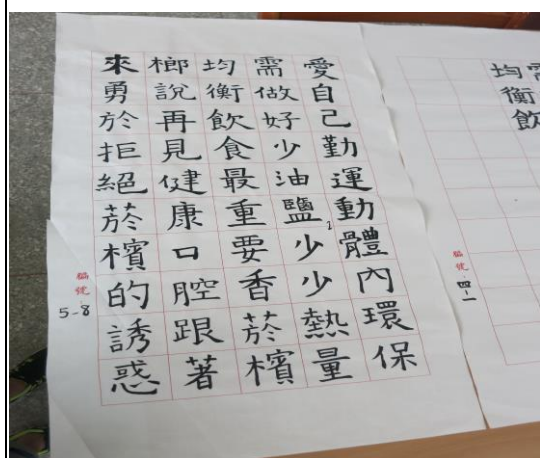 愛自己勤運動體內環保
需做好少油鹽少少熱量
均衡飲食最重要香菸檳
榔說再見健康口腔跟著
來勇於拒絕菸檳的誘惑
編號:
5-8
需
均衡飲
編號:
四-1